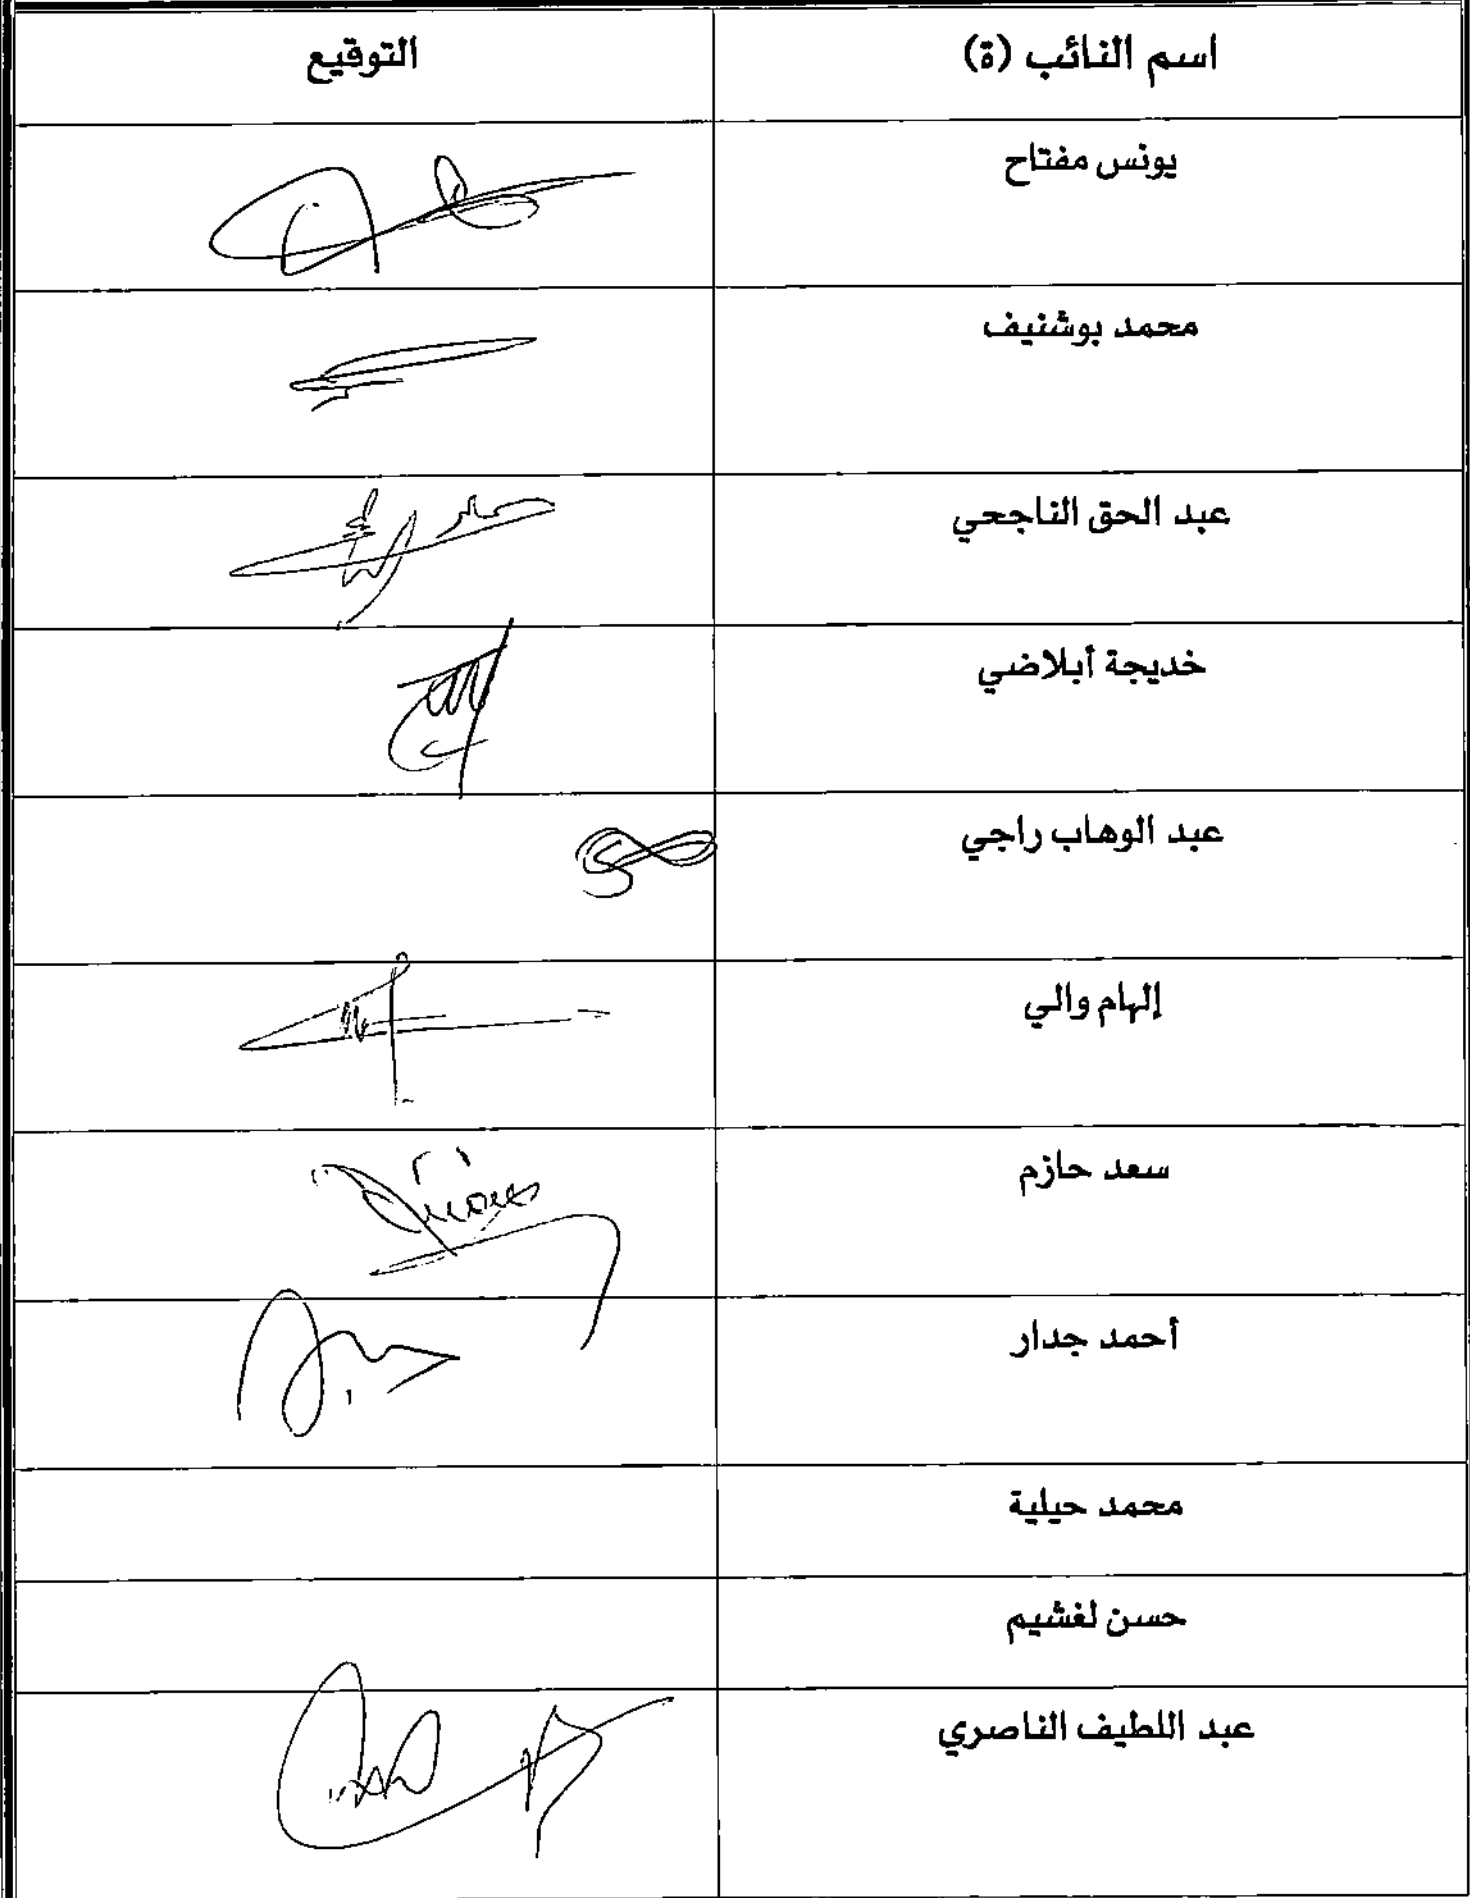 اسم النائب (ة) التوقيع
يونس مفتاح
محمد بوشنيف
عبد الحق الناجحي
خديجة أبلاضي
عبد الوهاب راجي
إلهام والي
سعد حازم
أحمد جدار
محمد حيلية
حسن لغشيم
عبد اللطيف الناصري